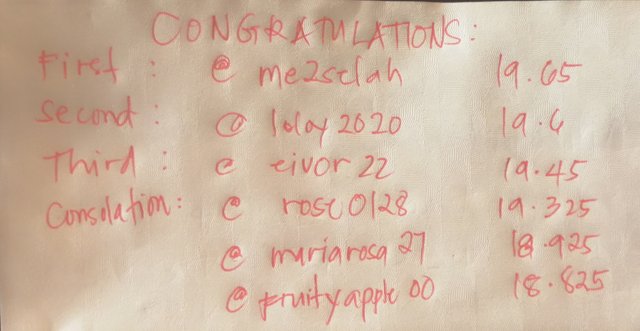 CONGRATULATIONS:
First : @ me2selah 19.65
Second : @ lolay2020 19.6
Third : @ eivor22 19.45
Consolation : @ rose0128 19.325
@ mariarosa27 18.925
@ fruityapple00 18.825